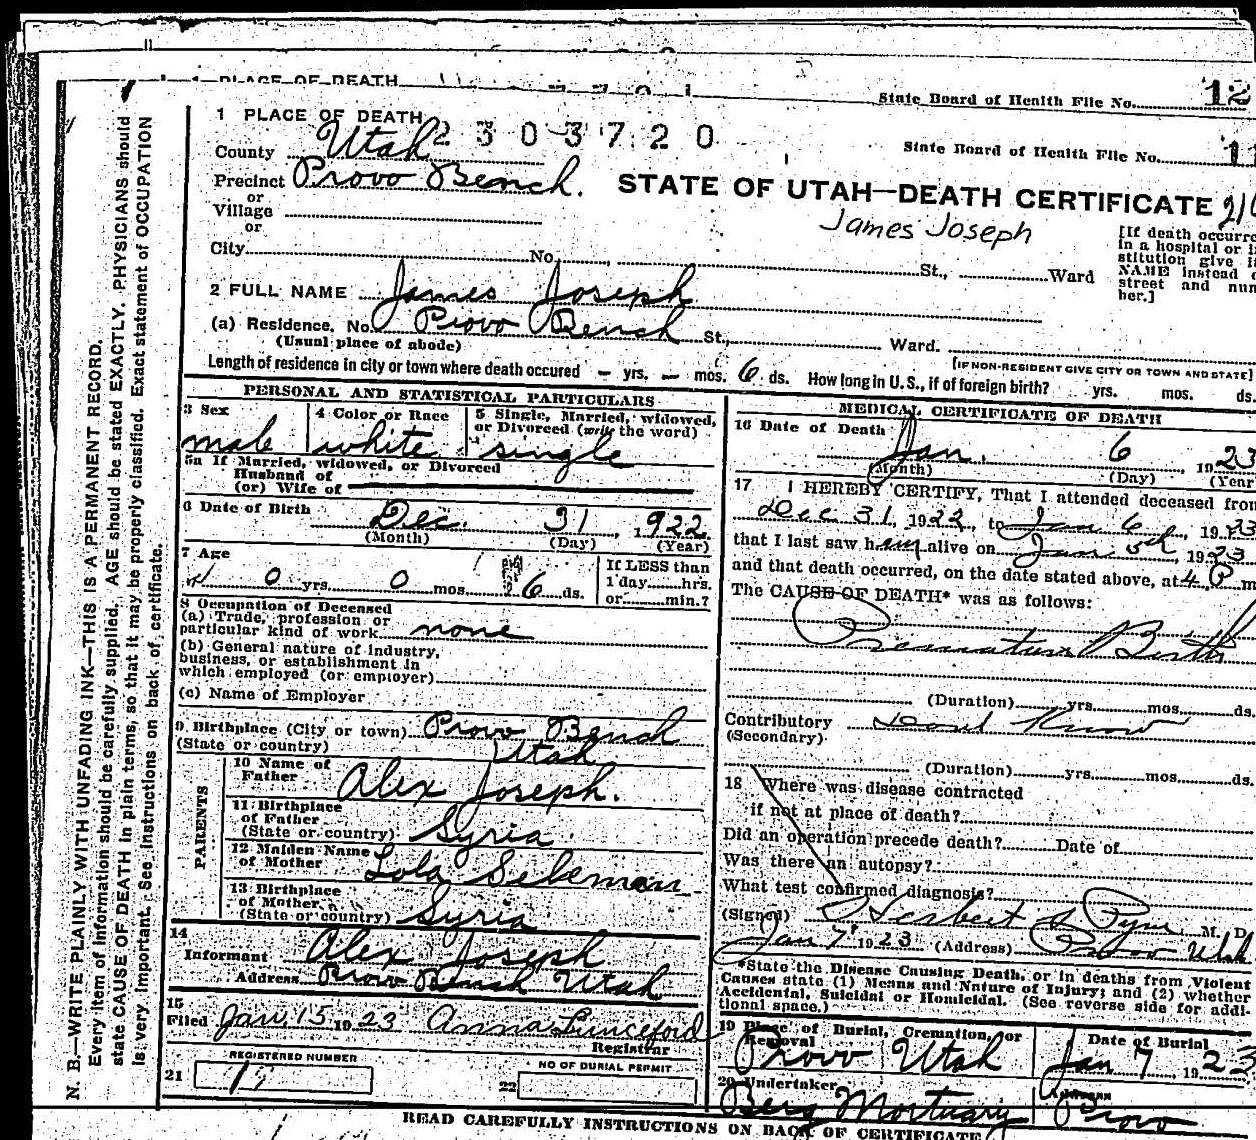 1 PLACE OF DEATH
State Board of Health File No. 12
1 PLACE OF DEATH
2303720
State Board of Health File No. 11
County Utah
Precinct Provo Bench.
or
Village
or
STATE OF UTAH—DEATH CERTIFICATE
James Joseph
[If death occurre
in a hospital or i
stitution give i
NAME instead o
street and num
ber.]
City No. St., Ward
2 FULL NAME James Joseph
(a) Residence, No. Provo Bench St., Ward.
(Usual place of abode)
[IF NON-RESIDENT GIVE CITY OR TOWN AND STATE]
Length of residence in city or town where death occured - yrs. - mos. 6 ds. How long in U.S., if of foreign birth? yrs. mos. ds.
N. B.—WRITE PLAINLY WITH UNFADING INK—THIS IS A PERMANENT RECORD.
Every item of information should be carefully supplied. AGE should be stated EXACTLY. PHYSICIANS should
state CAUSE OF DEATH in plain terms, so that it may be properly classified. Exact statement of OCCUPATION
is very important. See instructions on back of certificate.
PERSONAL AND STATISTICAL PARTICULARS
3 Sex
male
4 Color or Race
white
5 Single, Married, widowed,
or Divorced (write the word)
single
5a If Married, widowed, or Divorced
Husband of
(or) Wife of
6 Date of Birth Dec. 31, 1922
(Month) (Day) (Year)
7 Age
0 yrs. 0 mos. 6 ds.
If LESS than
1 day hrs.
or min.?
8 Occupation of Deceased
(a) Trade, profession or
particular kind of work none
(b) General nature of industry,
business, or establishment in
which employed (or employer)
(c) Name of Employer
9 Birthplace (City or town) Provo Bench
(State or country) Utah
PARENTS
10 Name of
Father Alex Joseph.
11 Birthplace
of Father
(State or country) Syria
12 Maiden Name
of Mother Lola
13 Birthplace
of Mother
(State or country) Syria
14
Informant Alex Joseph
Address Provo Bench Utah
15
Filed Jan. 15 1923 Anna Lunceford
Registrar
REGISTERED NUMBER
21
NO OF BURIAL PERMIT
22
MEDICAL CERTIFICATE OF DEATH
16 Date of Death Jan. 6, 1923
(Month) (Day) (Year
17 I HEREBY CERTIFY, That I attended deceased from
Dec 31, 1922, to Jan 6, 1923
that I last saw him alive on Jan 5th, 1923
and that death occurred, on the date stated above, at 4 P m
The CAUSE OF DEATH* was as follows:
Premature Birth
(Duration) yrs. mos. ds.
Contributory Dont Know
(Secondary)
(Duration) yrs. mos. ds.
18 Where was disease contracted
if not at place of death?
Did an operation precede death? Date of
Was there an autopsy?
What test confirmed diagnosis?
(Signed) Herbert S Pyne M. D.
Jan 7 1923 (Address) Provo Utah
*State the Disease Causing Death, or in deaths from Violent
Causes state (1) Means and Nature of Injury; and (2) whether
Accidental, Suicidal or Homicidal. (See reverse side for addi-
tional space.)
19 Place of Burial, Cremation, or
Removal
Provo Utah
Date of Burial
Jan 7 1923
20 Undertaker
Berg Mortuary
Address
Provo
READ CAREFULLY INSTRUCTIONS ON BACK OF CERTIFICATE